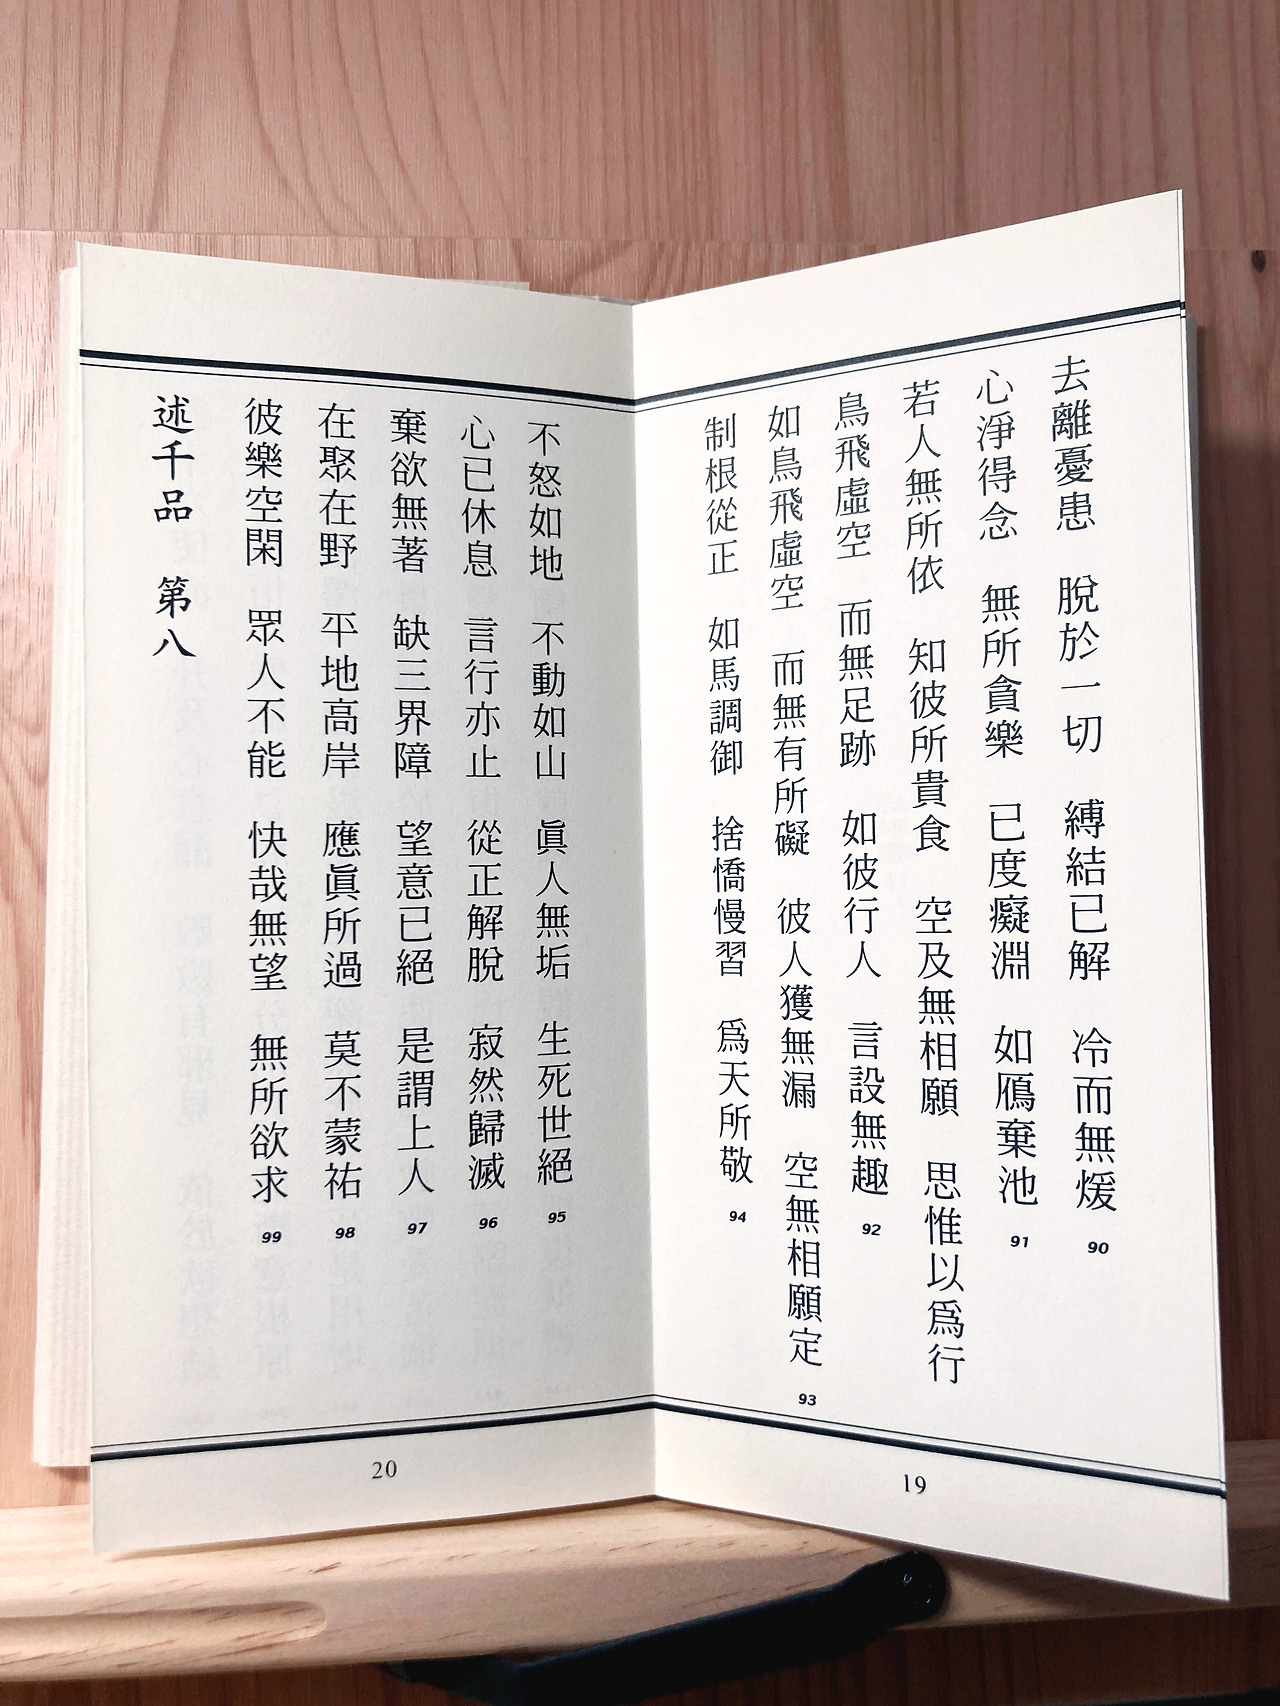 去離憂患　脫於一切　縛結已解　冷而無煖 90
心淨得念　無所貪樂　已度癡淵　如鴈棄池 91
若人無所依　知彼所貴食　空及無相願　思惟以爲行
鳥飛虛空　而無足跡　如彼行人　言設無趣 92
如鳥飛虛空　而無有所礙　彼人獲無漏　空無相願定 93
制根從正　如馬調御　捨憍慢習　爲天所敬 94
19
不怒如地　不動如山　眞人無垢　生死世絕 95
心已休息　言行亦止　從正解脫　寂然歸滅 96
棄欲無著　缺三界障　望意已絕　是謂上人 97
在聚在野　平地高岸　應眞所過　莫不蒙祐 98
彼樂空閑　眾人不能　快哉無望　無所欲求 99
述千品　第八
20